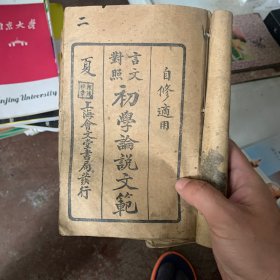 二
自修適用
言文對照
初學論說文範
夏
上海會文堂書局發行
京大學
njing University